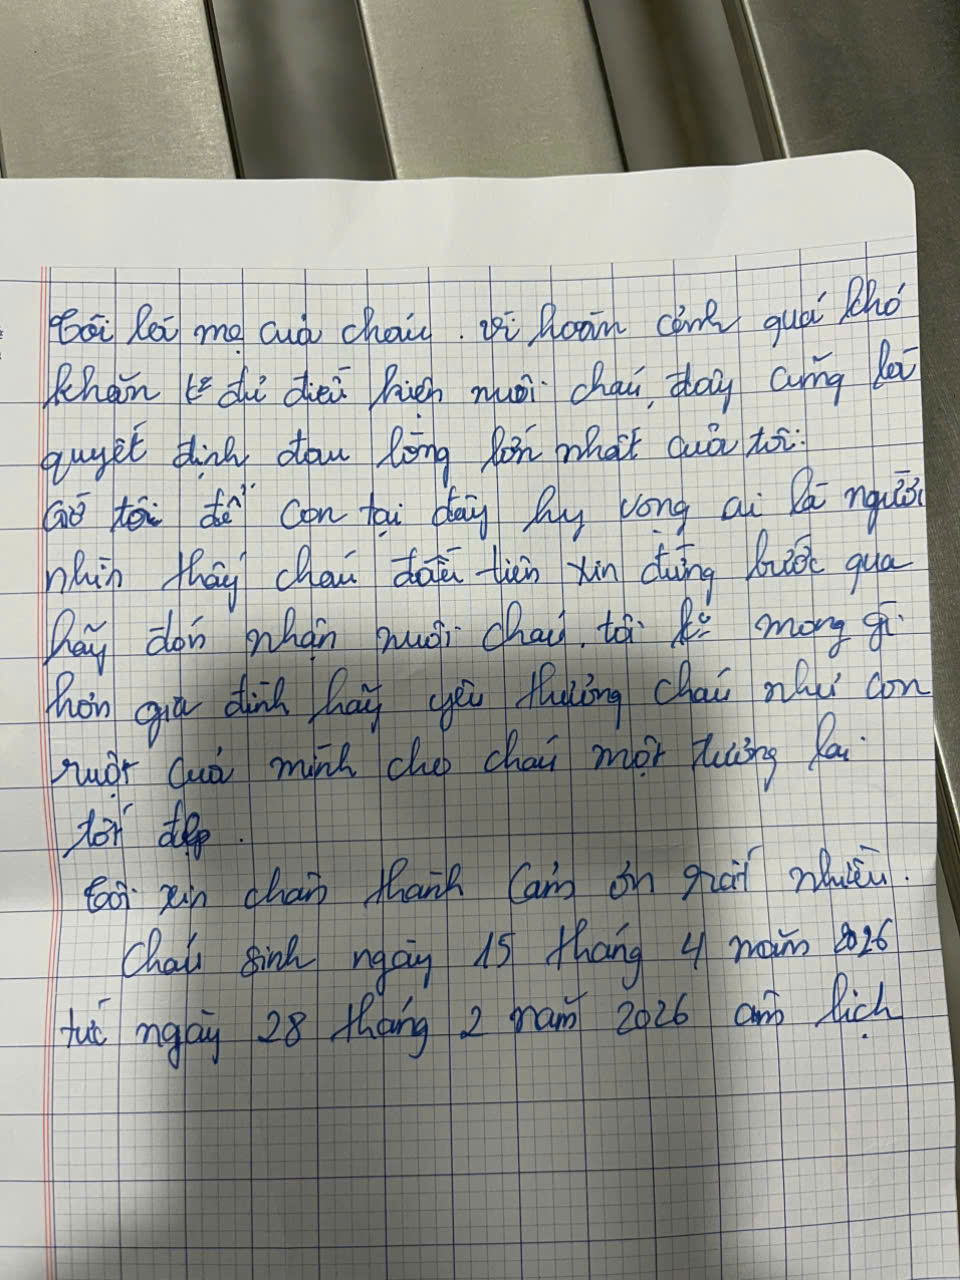 Tôi là mẹ của cháu. vì hoàn cảnh quá khó
khăn k° đủ điều kiện nuôi cháu, đây cũng là
quyết định đau lòng lớn nhất của tôi.
Giờ tôi để con tại đây hy vọng ai là người
nhìn thấy cháu đầu tiên xin đừng bước qua
hãy đón nhận nuôi cháu. tôi k° mong gì
hơn gia đình hãy yêu thương cháu như con
ruột của mình cho cháu một tương lai
tốt đẹp.
Tôi xin chân thành cảm ơn rất nhiều.
Cháu sinh ngày 15 tháng 4 năm 2026
tức ngày 28 tháng 2 năm 2026 âm lịch